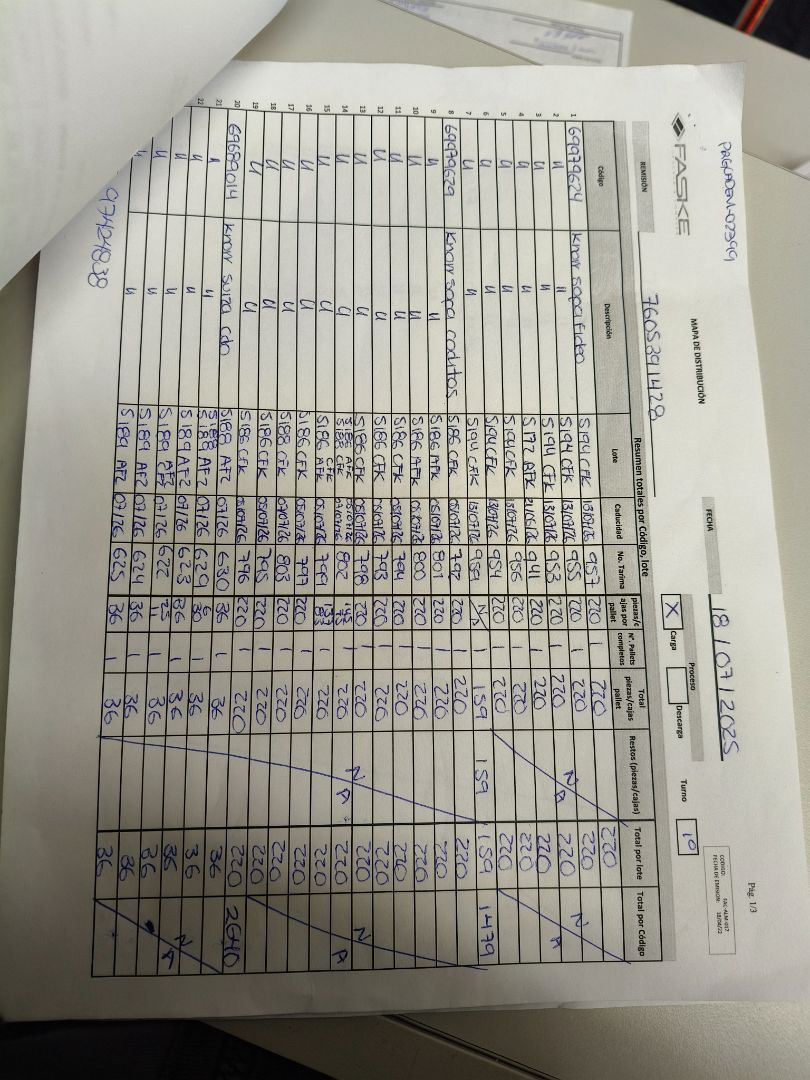 Pág. 1/3
CODIGO: FAC-ALM-007
FECHA DE EMISIÓN: 18/04/22
FASKE
MAPA DE DISTRIBUCIÓN
FECHA 18/07/2025
Proceso
X Carga
Descarga
Turno 1º
REMISIÓN 7605391428
Resumen totales por Código, lote
Código Descripción Lote Caducidad No. Tarima piezas/cajas por pallet N°. Pallets completos Total piezas/cajas pallet Restos (piezas/cajas) Total por lote Total por Código
1 69979624 Knorr sopa Fideo 5194 CFK 13/07/26 957 220 1 220 220
2 " " 5194 CFK 13/07/26 955 220 1 220 220
3 " " 5194 CFK 13/07/26 953 220 1 220 NA 220 NA
4 " " 5172 AFK 21/06/26 941 220 1 220 220
5 " " 5194 CFK 13/07/26 956 220 1 220 220
6 " " 5194 CFK 13/07/26 954 220 1 220 220
7 " " 5194 CFK 13/07/26 959 NA 1 159 159 159 1479
8 69979629 Knorr sopa coditos 5186 CFK 05/07/26 792 220 1 220 220
9 " " 5186 AFK 05/07/26 801 220 1 220 220
10 " " 5186 AFK 05/07/26 800 220 1 220 220
11 " " 5186 CFK 05/07/26 794 220 1 220 220
12 " " 5186 CFK 05/07/26 793 220 1 220 220
13 " " 5186 CFK 05/07/26 798 220 1 220 220
14 " " 5186 AFK 5188 CFK 05/07/26 07/07/26 802 145 75 1 220 NA 220 NA
15 " " 5186 CFK AFK 05/07/26 799 137 83 1 220 220
16 " " 5186 CFK 05/07/26 797 220 1 220 220
17 " " 5188 CFK 07/07/26 803 220 1 220 220
18 " " 5186 CFK 05/07/26 795 220 1 220 220
19 " " 5186 CFK 05/07/26 796 220 1 220 220 2640
20 69689014 Knorr suiza cdo 5189 AF2 07/26 630 36 1 36 36
21 " " 5188 5188 AF2 07/26 629 6 30 1 36 36
22 " " 5189 AF2 07/26 623 36 1 36 36 NA
" " 5189 AF2 07/26 622 25 11 1 36 36
" " 5189 AF2 07/26 624 36 1 36 36
" " 5189 AF2 07/26 625 36 1 36 36